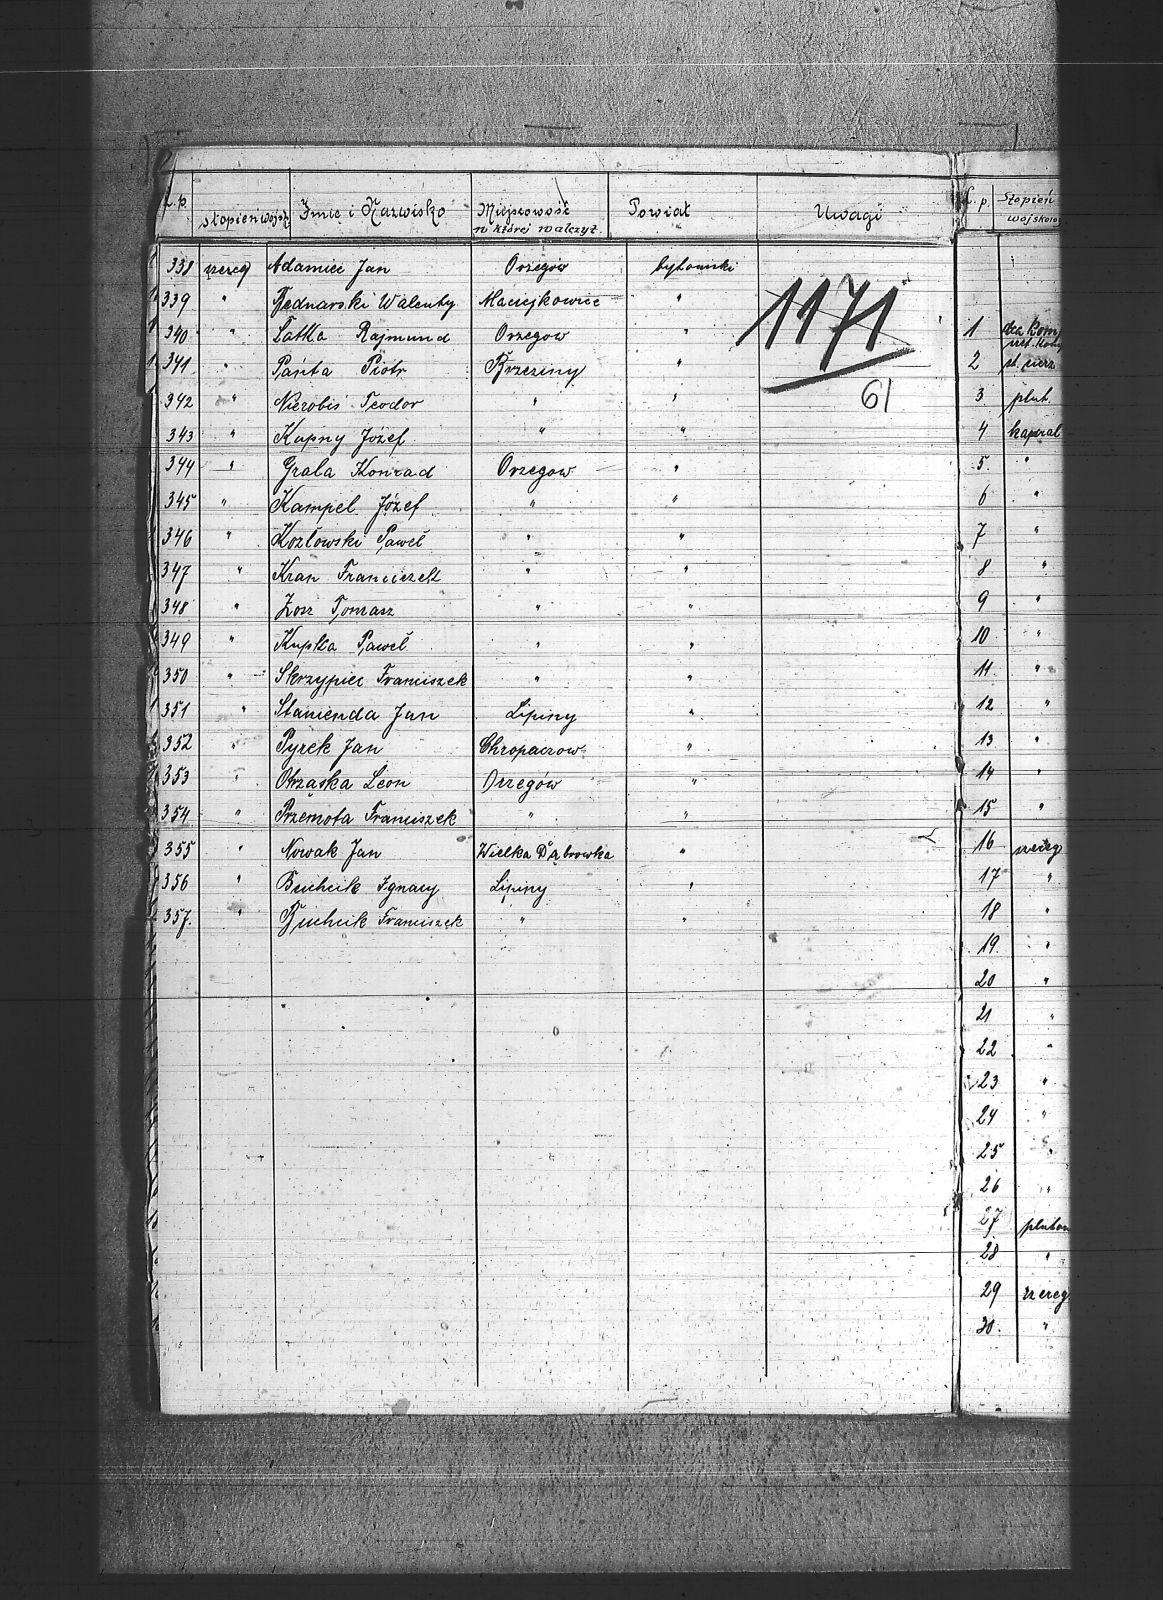 L.p. Stopień wojsk. Imię i Nazwisko Miejscowość w której walczył. Powiat Uwagi
338 szereg Adamiec Jan Orzegów bytomski
339 " Bednarski Walenty Maciejkowice "
340 " Łatka Rajmund Orzegow "
341 " Panta Piotr Brzeziny "
342 " Nierobiś Teodor " "
343 " Kupny Józef " "
344 " Grala Konrad Orzegow "
345 " Kampel Józef " "
346 " Kozłowski Paweł " "
347 " Kran Franciszek " "
348 " Zosz Tomasz " "
349 " Kupka Paweł " "
350 " Skrzypiec Franciszek " "
351 " Stanienda Jan Lipiny "
352 " Pyrek Jan Chropaczow "
353 " Okrzaska Leon Orzegów "
354 " Przemota Franciszek " "
355 " Nowak Jan Wielka Dąbrowka "
356 " Buchcik Ignacy Lipiny "
357. " Buchcik Franciszek " "
1171
61
L. p. Stopień
wojskow
1
2
3 plut.
4 kapral
5. "
6 "
7 "
8 "
9 "
10 "
11. "
12 "
13 "
14 "
15 "
16 szereg
17 "
18 "
19. "
20 "
21 "
22 "
23 "
24 "
25 "
26 "
27 pluton
28 "
29 szereg
30. "